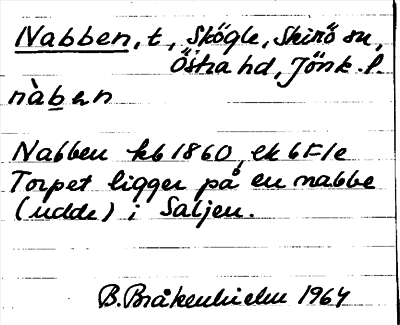 Nabben, t, Skögle, Skirö sn,
Östra hd, Jönk. l.
nàben
Nabben kb 1860, ek 6F1e
Torpet ligger på en nabbe
(udde) i Saljen.
B. Bråkenhielm 1964